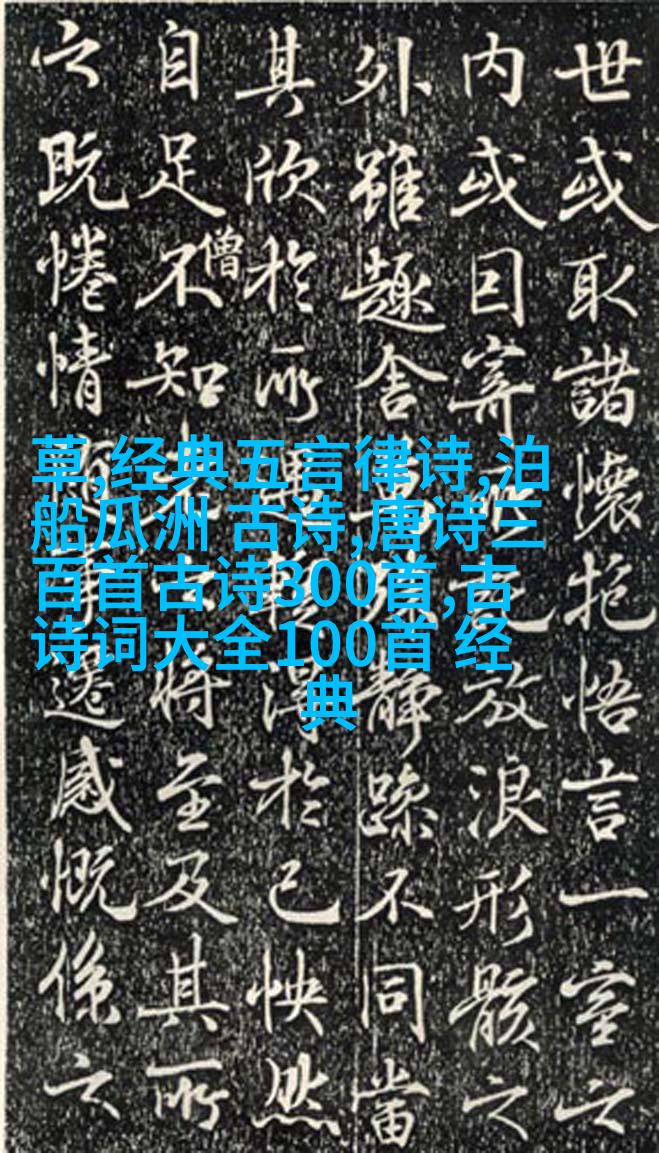 世或取諸懷抱悟言一室之
内或因寄所託放浪形骸之
外雖趣舍萬殊靜躁不同當
其欣於所遇暫得於己怏然
自足不知老之將至及其所
僧
之既惓情隨事遷感慨係之
草,经典五言律诗,泊
船瓜洲 古诗,唐诗三
百首古诗300首,古
诗词大全100首 经
典